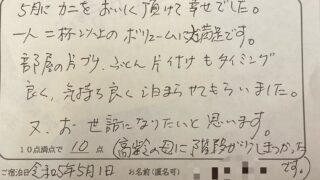 5月にカニをおいしく頂けて幸せでした。
一人二杯以上のボリュームに大満足です。
部屋の片づけ、ふとん片付けもタイミング
良く、気持ち良く泊まらせてもらいました。
又、お世話になりたいと思います。
10点満点で 10 点 (高齢の母に階段がりしまつかった
です。)
ご宿泊日 令和5年5月1日 お名前(匿名可)